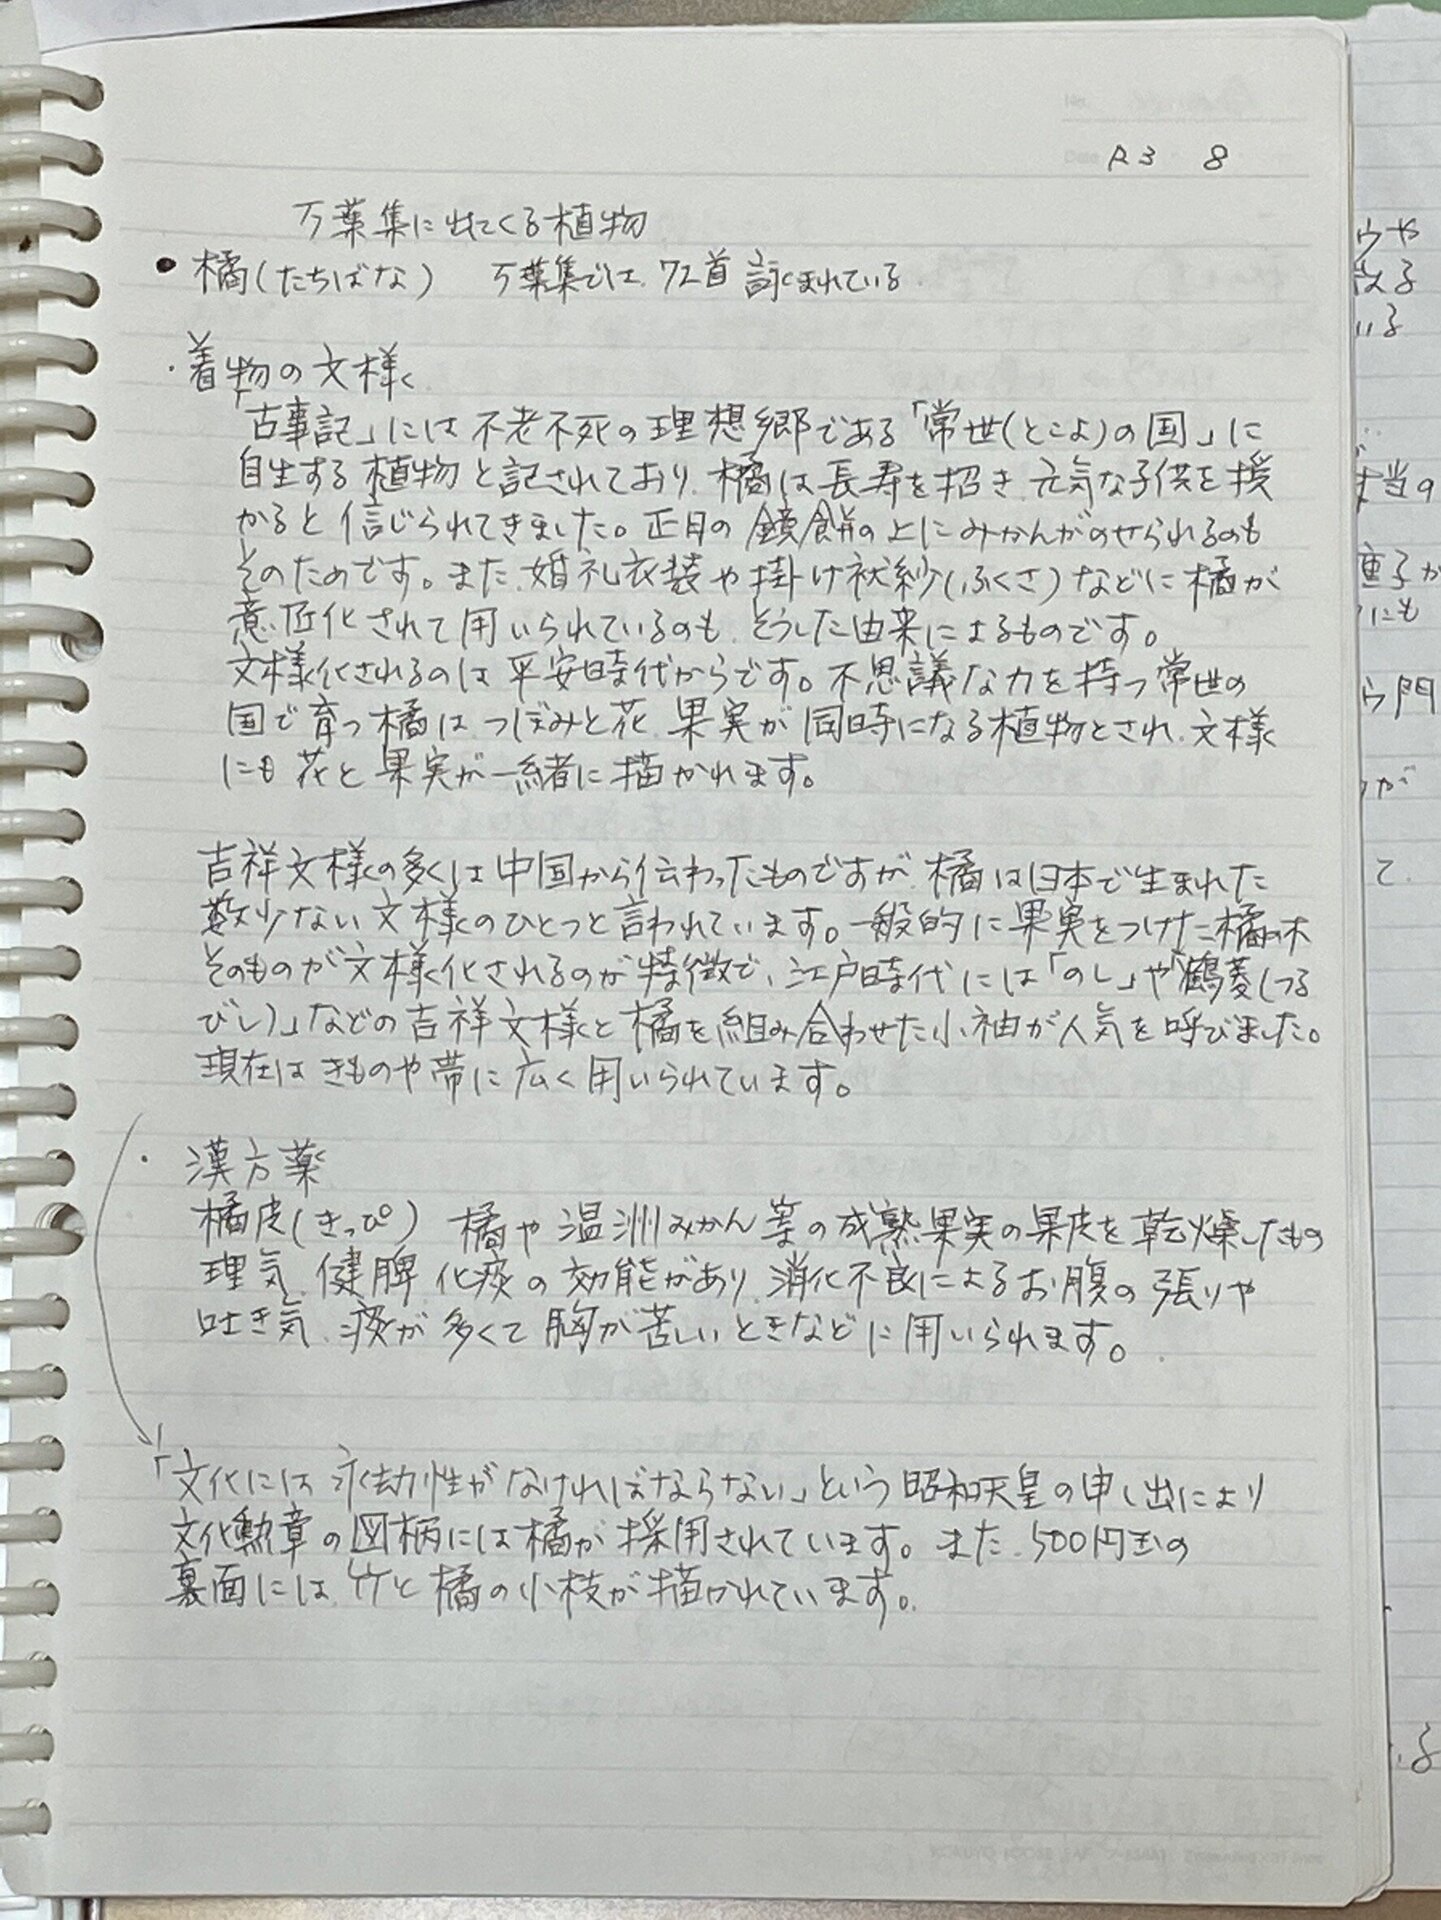 R3 8
万葉集に出てくる植物
● 橘(たちばな) 万葉集では、72首 詠まれている
・着物の文様
「古事記」には不老不死の理想郷である「常世(とこよ)の国」に
自生する植物と記されており、橘は長寿を招き、元気な子供を授
かると信じられてきました。正月の鏡餅の上にみかんがのせられるのも
そのためです。また、婚礼衣装や掛け袱紗(ふくさ)などに橘が
意匠化されて用いられているのも、そうした由来によるものです。
文様化されるのは平安時代からです。不思議な力を持つ常世の
国で育つ橘は、つぼみと花、果実が同時になる植物とされ、文様
にも花と果実が一緒に描かれます。
吉祥文様の多くは中国から伝わったものですが、橘は日本で生まれた
数少ない文様のひとつと言われています。一般的に果実をつけた橘の木
そのものが文様化されるのが特徴で、江戸時代には「のし」や「鶴菱(つる
びし)」などの吉祥文様と橘を組み合わせた小袖が人気を呼びました。
現在はきものや帯に広く用いられています。
・漢方薬
橘皮(きっぴ) 橘や温州みかん等の成熟果実の果皮を乾燥したもの
理気、健脾、化痰の効能があり、消化不良によるお腹の張りや
吐き気、痰が多くて胸が苦しいときなどに用いられます。
「文化には永劫性がなければならない」という昭和天皇の申し出により
文化勲章の図柄には橘が採用されています。また、500円玉の
裏面には、竹と橘の小枝が描かれています。